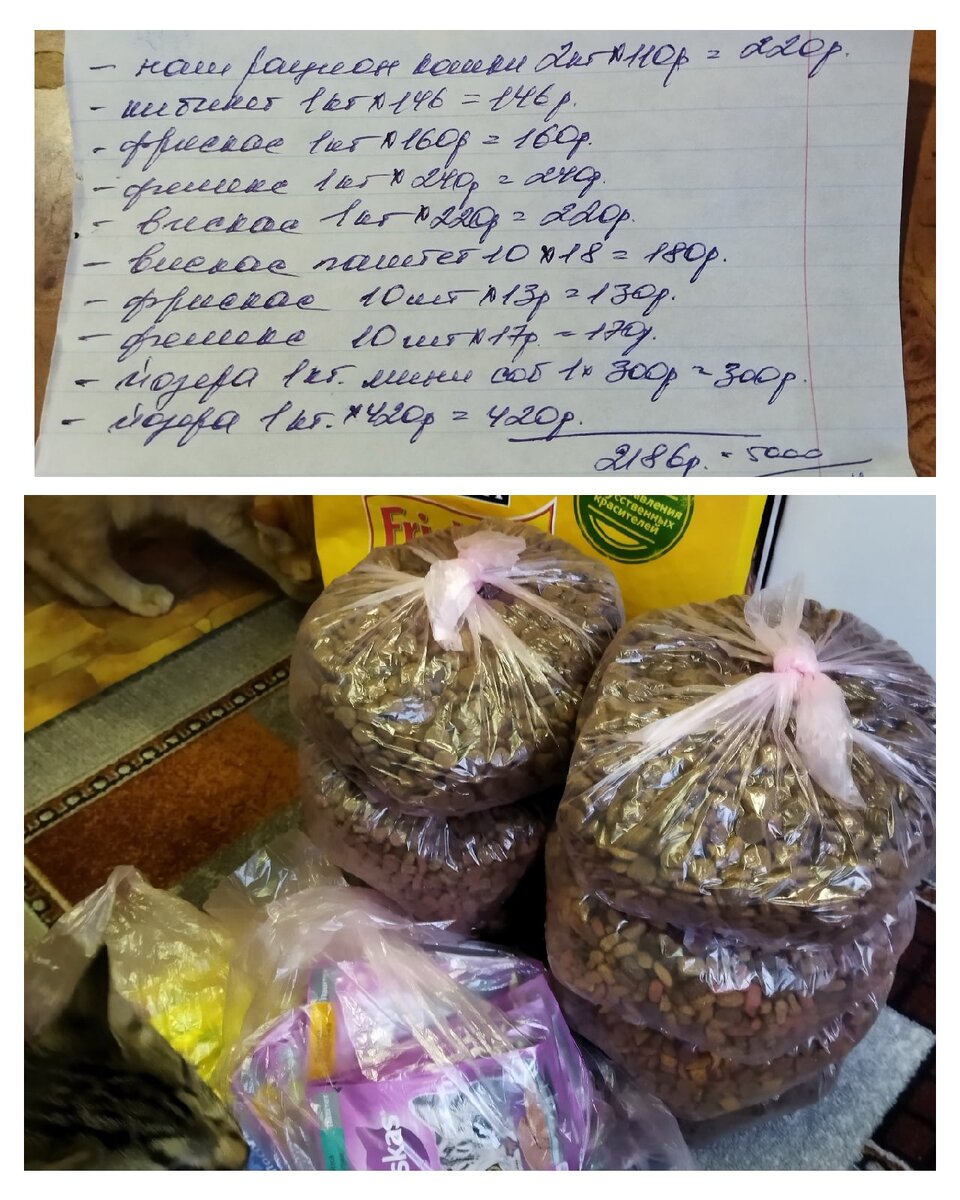 - наш рацион кошки 2кг × 110р = 220р.
- китикет 1кг × 146 = 146р.
- фрискас 1кг × 160р = 160р.
- феликс 1кг × 240р = 240р.
- вискас 1кг × 220р = 220р.
- вискас паштет 10 × 18 = 180р.
- фрискас 10шт × 13р = 130р.
- феликс 10шт × 17р = 170р.
- йозера 1кг. мини соб 1 × 300р = 300р.
- йозера 1кг. × 420р = 420р.
2186р. - 5000
Fri
красителей
skas